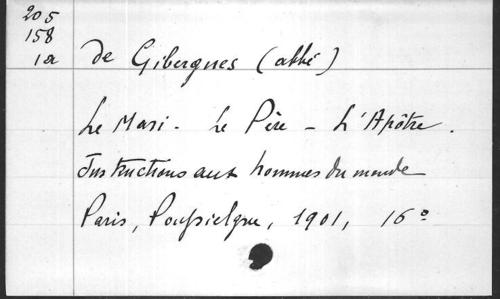 205
158
1a
de Gibergues (abbé)
Le Mari - Le Père - L'Apôtre.
Instructions aux hommes du monde
Paris, Poussielgue, 1901, 16°